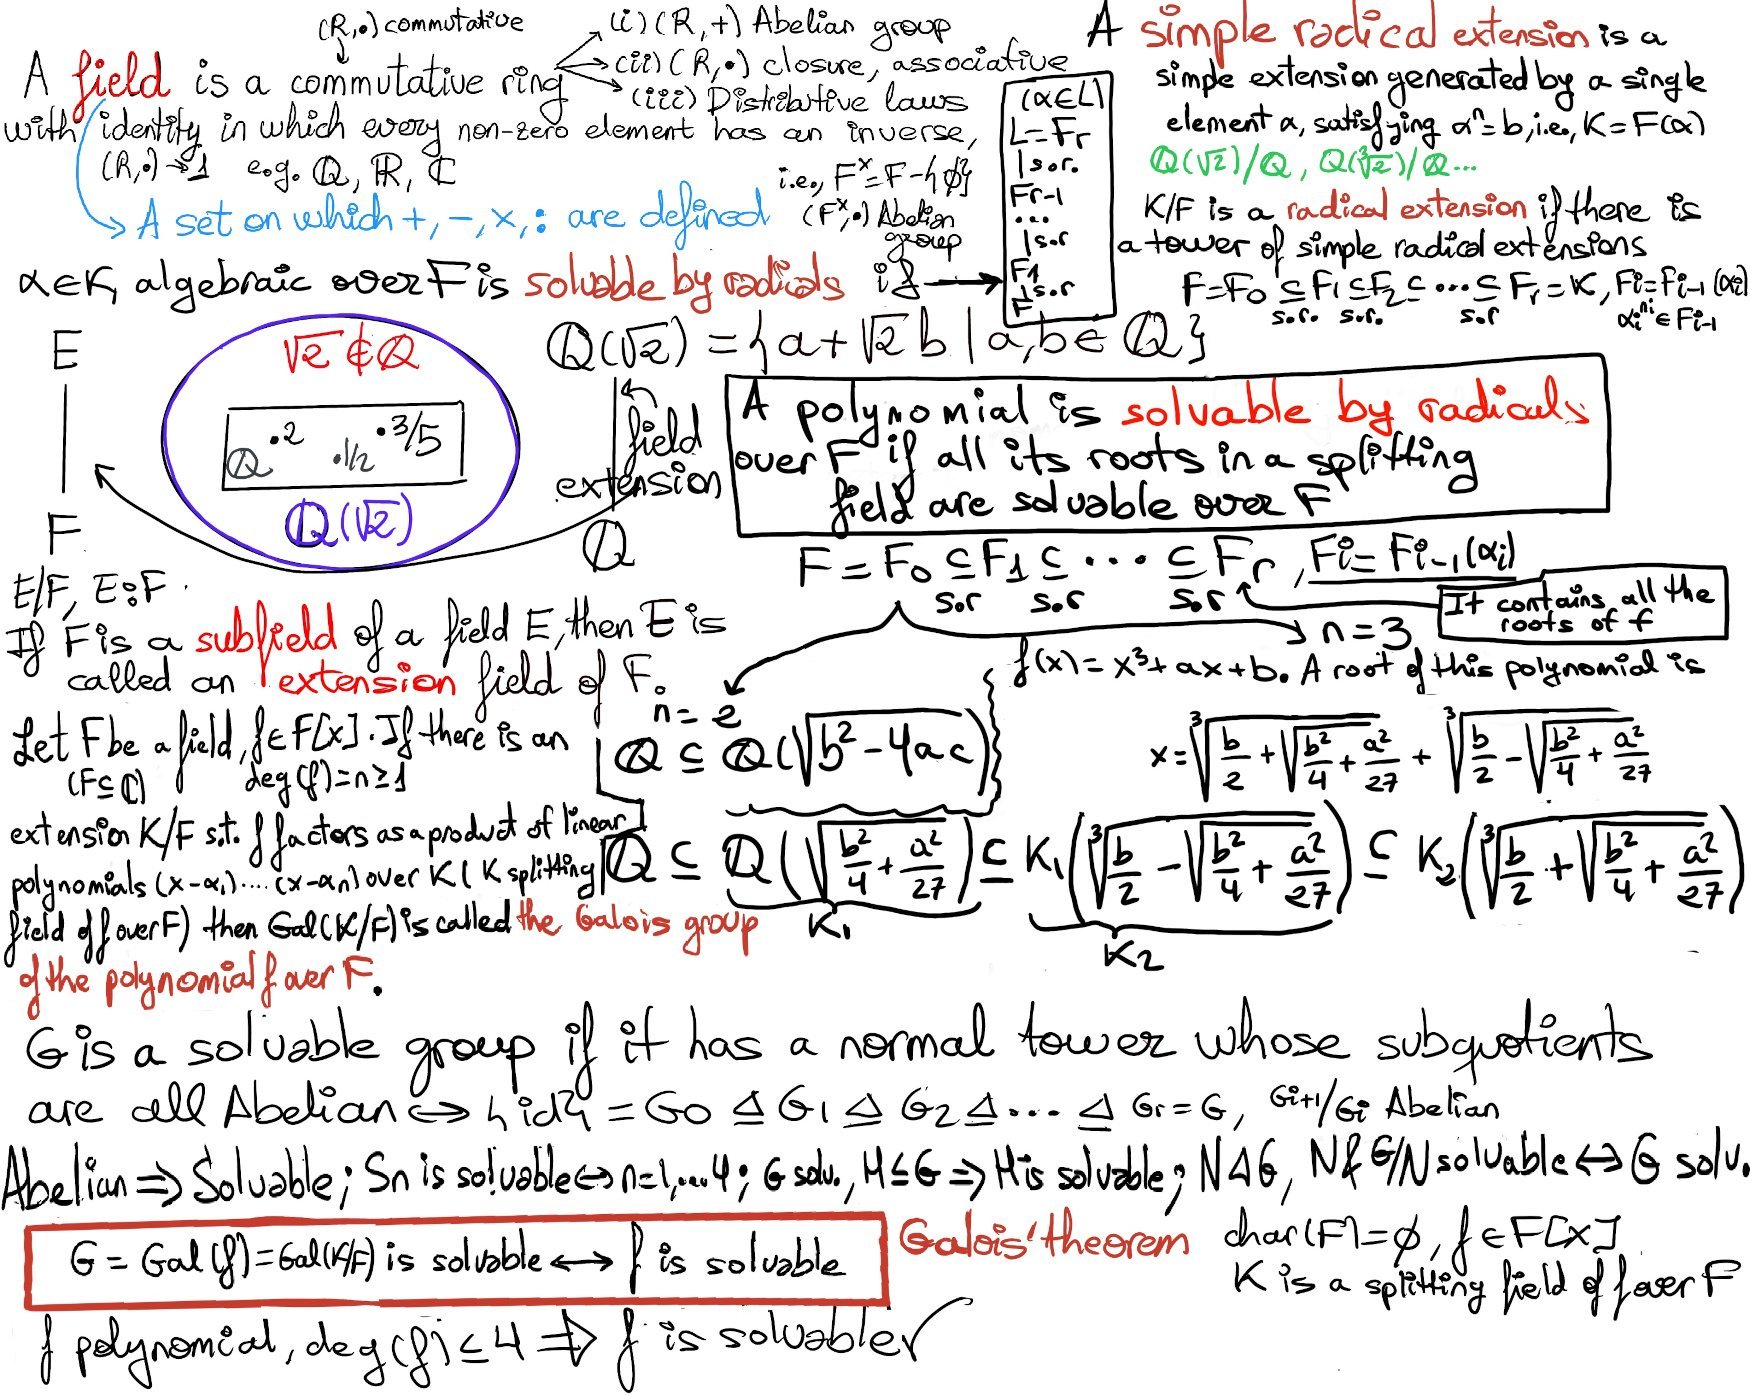 (R,•) commutative
A field is a commutative ring
(i) (R, +) Abelian group
(ii) (R, •) closure, associative
(iii) Distributive laws
with identity in which every non-zero element has an inverse,
(R,•) → 1 e.g. ℚ, ℝ, ℂ
i.e., F^x = F - {ϕ}
(F^x, •) Abelian group
A set on which +, -, x, : are defined
α∈K, algebraic over F is solvable by radicals if
(α∈L)
L=Fr
| s.r.
Fr-1
...
| s.r
F1
| s.r
F
A simple radical extension is a
simple extension generated by a single
element α, satisfying αⁿ=b, i.e., K=F(α)
ℚ(√2)/ℚ, ℚ(∛2)/ℚ...
K/F is a radical extension if there is
a tower of simple radical extensions
F=F₀ ⊆ F₁ ⊆ F₂ ⊆ ... ⊆ Fr = K, Fi = Fi-1(αi)
s.r. s.r. s.r αi^ni ∈ Fi-1
E
|
F
√2 ∉ ℚ
ℚ •2 •1/2 •3/5
ℚ(√2)
ℚ(√2) = {a+√2 b | a,b ∈ ℚ}
field
extension
ℚ
A polynomial is solvable by radicals
over F if all its roots in a splitting
field are solvable over F
F = F₀ ⊆ F₁ ⊆ ... ⊆ Fr, Fi = Fi-1(αi)
s.r s.r s.r
It contains all the
roots of f
E/F, E:F
If F is a subfield of a field E, then E is
called an extension field of F.
n=3
f(x) = x³+ax+b. A root of this polynomial is
n=2
ℚ ⊆ ℚ(√(b²-4ac))
x = ∛(b/2 + √(b²/4 + a²/27)) + ∛(b/2 - √(b²/4 + a²/27))
ℚ ⊆ ℚ(√(b²/4 + a²/27)) ⊆ K₁(∛(b/2 - √(b²/4 + a²/27))) ⊆ K₂(∛(b/2 + √(b²/4 + a²/27)))
K₁
K₂
Let F be a field, f∈F[x]. If there is an
(F⊆ℂ) deg(f)=n≥1
extension K/F s.t. f factors as a product of linear
polynomials (x-α₁)....(x-αn) over K (K splitting
field of f over F) then Gal(K/F) is called the Galois group
of the polynomial f over F.
G is a solvable group if it has a normal tower whose subquotients
are all Abelian ↔ {id} = G0 ⊴ G1 ⊴ G2 ⊴ ... ⊴ Gr = G, Gi+1/Gi Abelian
Abelian ⇒ Solvable; Sn is solvable ↔ n=1,...4; G solv., H≤G ⇒ H is solvable; N⊲G, N & G/N solvable ↔ G solv.
G = Gal(f) = Gal(K/F) is solvable ↔ f is solvable
Galois' theorem
char(F)=ϕ, f∈F[x]
K is a splitting field of f over F
f polynomial, deg(f) ≤ 4 ⇒ f is solvable ✓